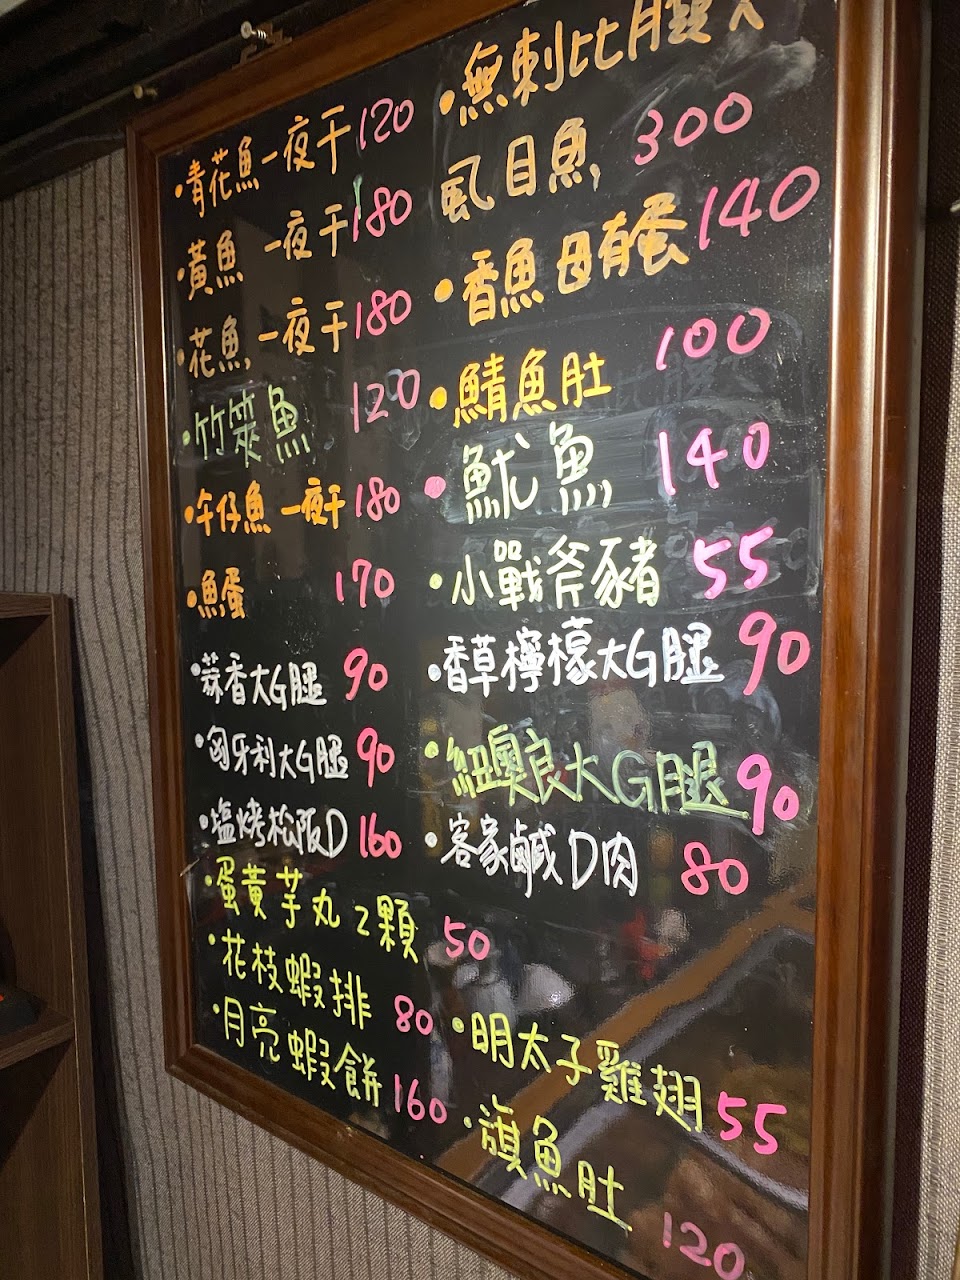 ·青花魚一夜干120
·黃魚 一夜干180
·花魚一夜干180
·竹筴魚 120
·午仔魚一夜干180
·魚蛋 170
·蒜香大G腿 90
·匈牙利大G腿 90
·塩烤松阪D 160
·蛋黃芋丸2顆 50
·花枝蝦排 80
·月亮蝦餅160
·無刺比月臉大
虱目魚 300
·香魚母有蛋140
·鯖魚肚 100
·魷魚 140
·小戰斧豬 55
·香草檸檬大G腿 90
·紐奧良大G腿 90
·客家鹹D肉 80
·明太子雞翅 55
·旗魚肚 120